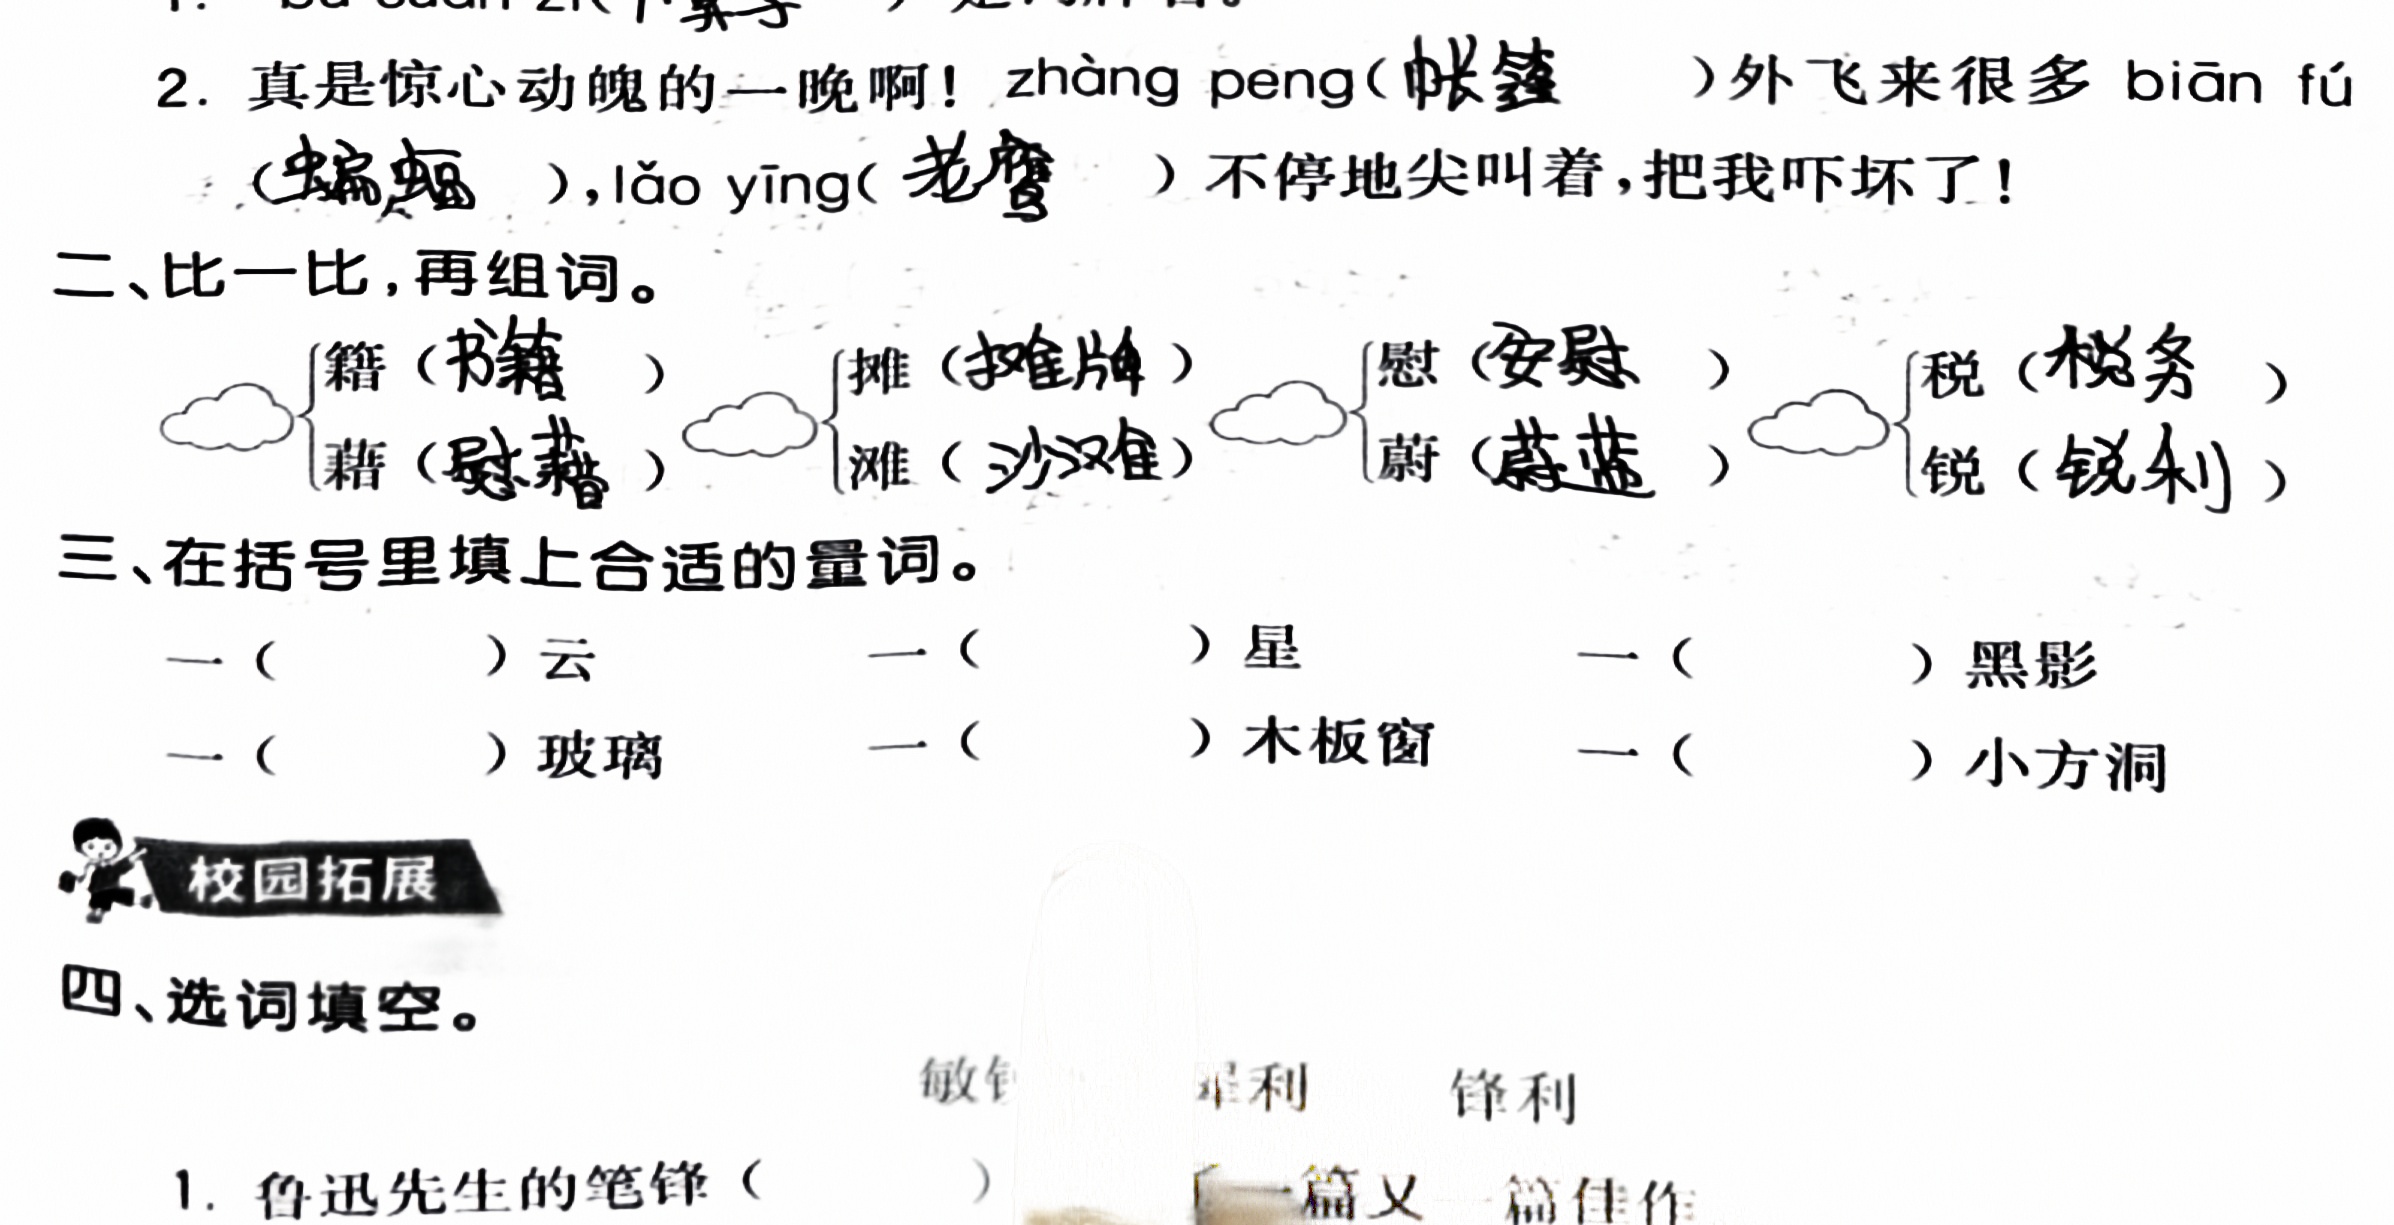 2. 真是惊心动魄的一晚啊！zhàng peng(帐篷)外飞来很多 biān fú
(蝙蝠),lǎo yīng(老鹰)不停地尖叫着,把我吓坏了！
二、比一比,再组词。
籍（书籍） 摊（摊牌） 慰（安慰） 税（税务）
藉（慰藉） 滩（沙滩） 蔚（蔚蓝） 锐（锐利）
三、在括号里填上合适的量词。
一（ ）云 一（ ）星 一（ ）黑影
一（ ）玻璃 一（ ）木板窗 一（ ）小方洞
校园拓展
四、选词填空。
敏 利 锋利
1. 鲁迅先生的笔锋（ ） 一篇又一篇佳作